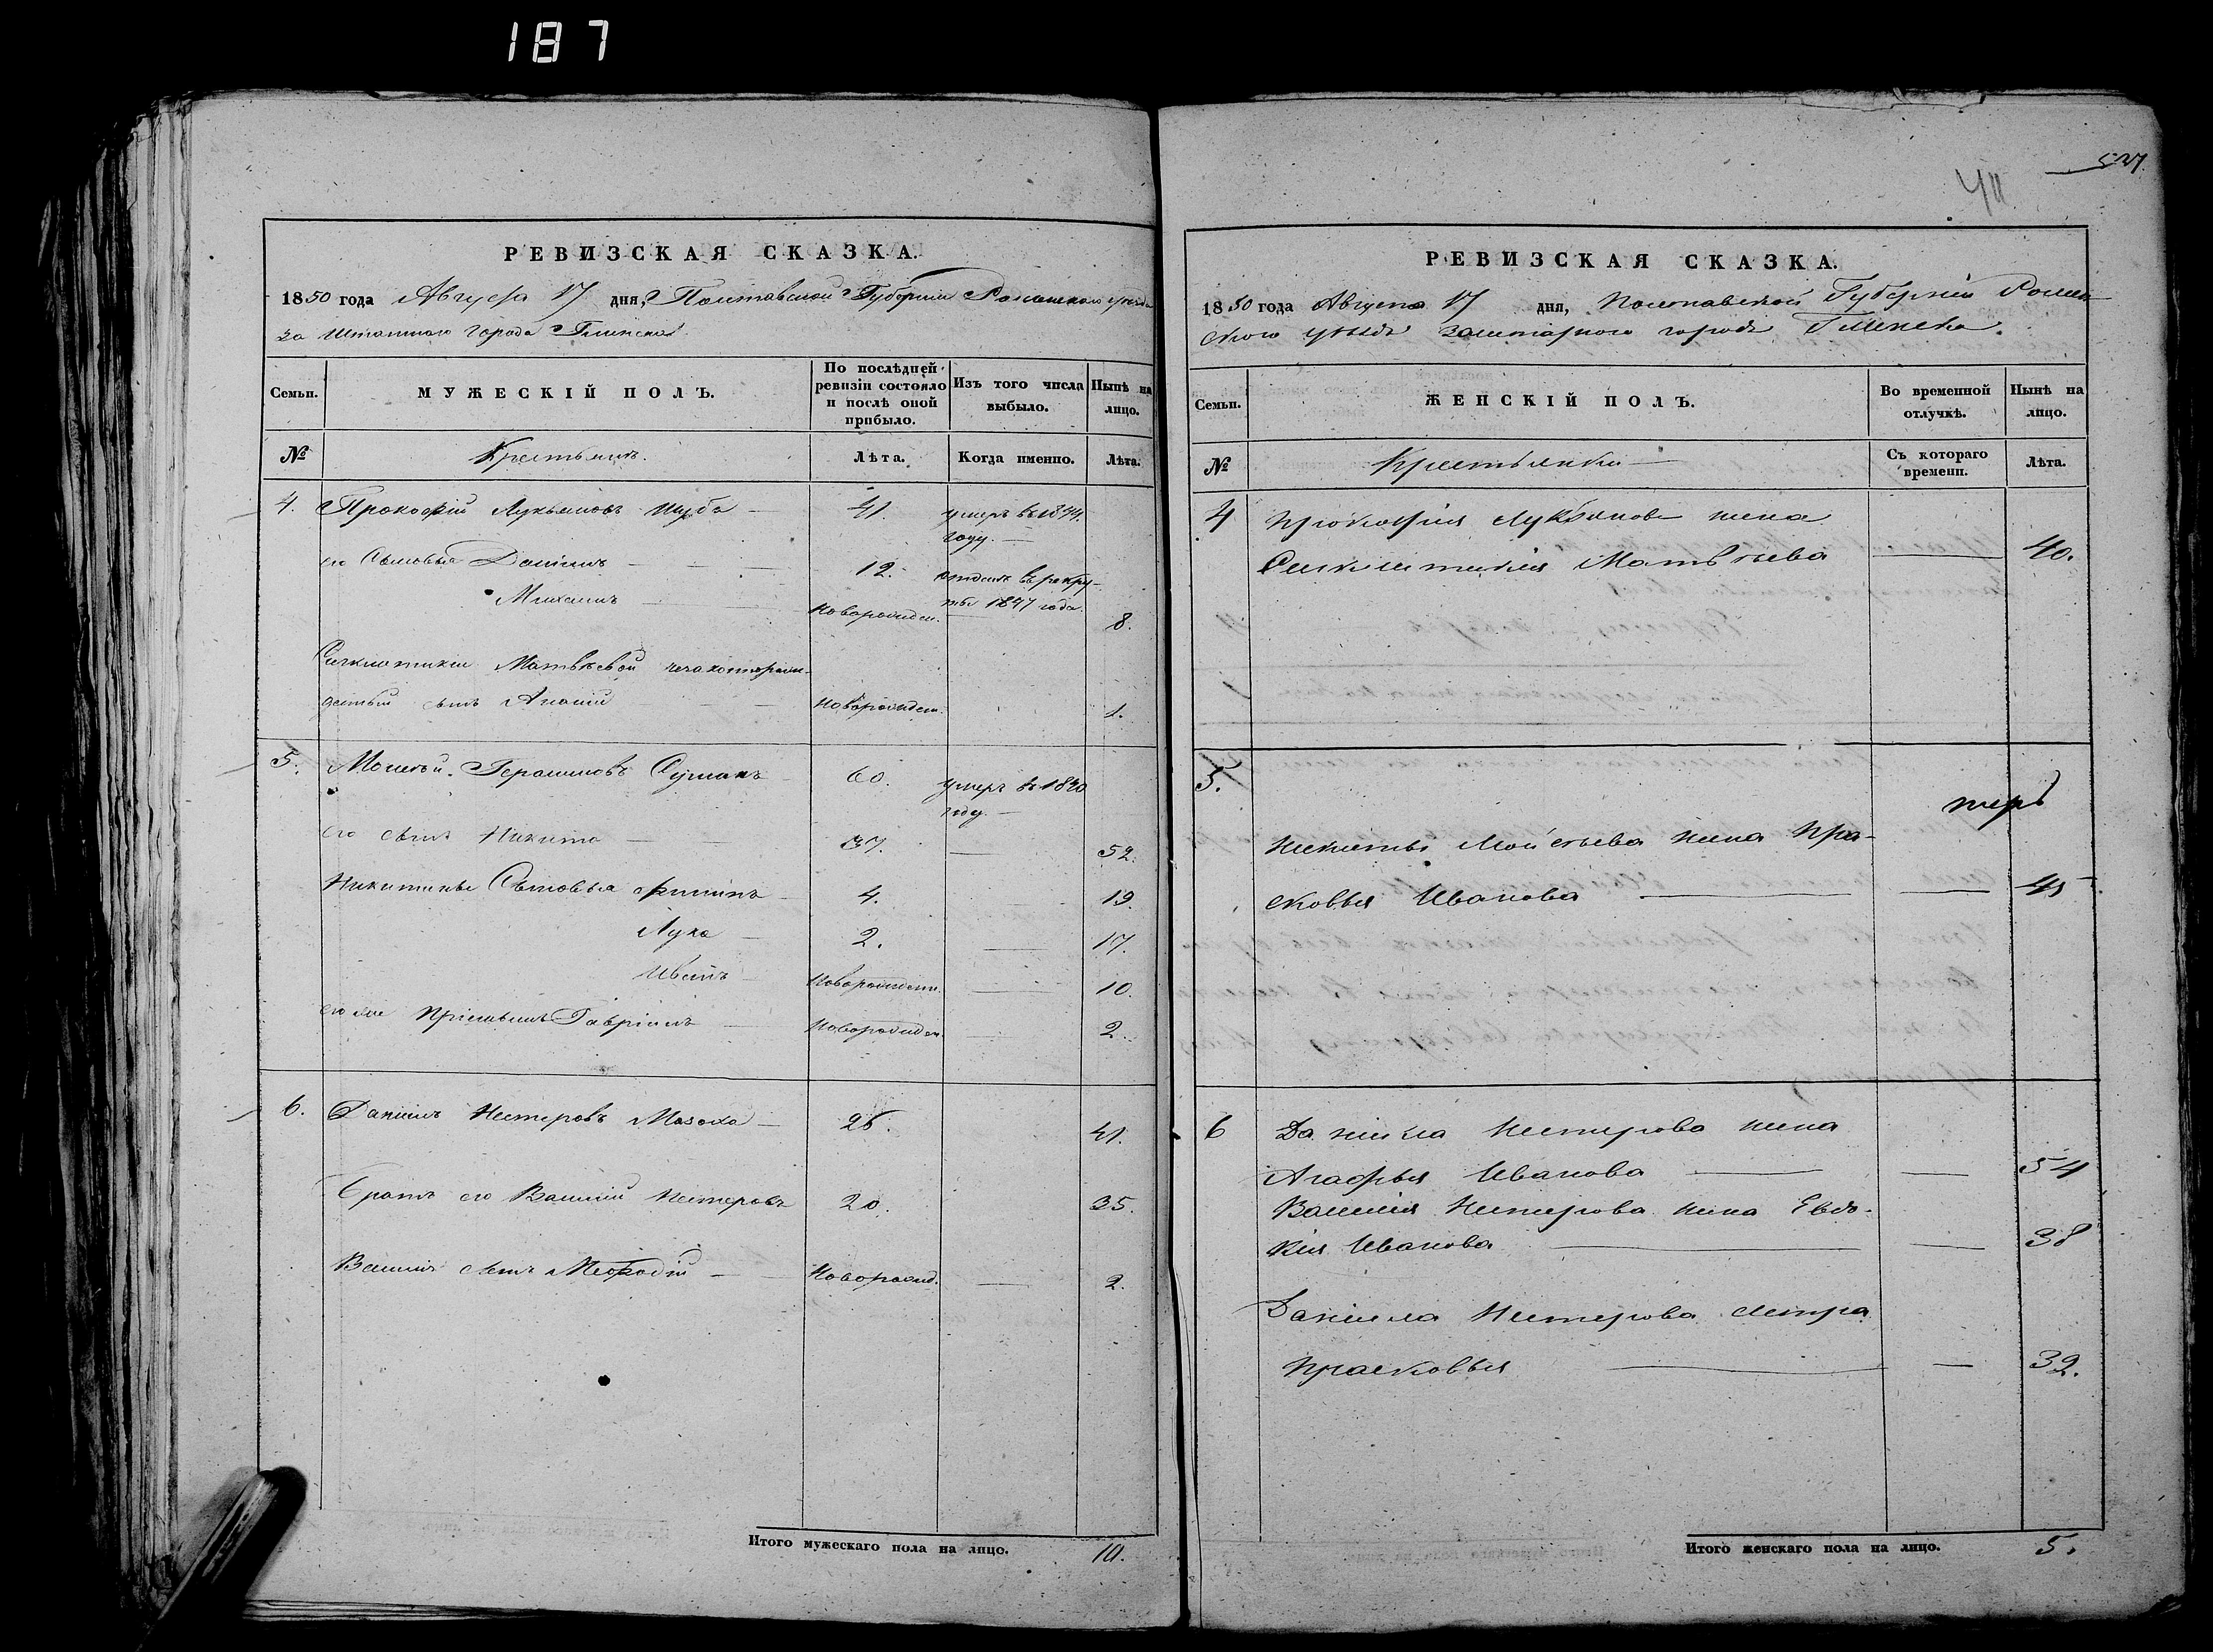 187
РЕВИЗСКАЯ СКАЗКА.
1850 года Августа 17 дня, Полтавской Губернии Роменского уезда
за Штатного города Глинска
Семьи.
МУЖЕСКІЙ ПОЛЪ.
По послѣдней ревизіи состояло и послѣ оной прибыло.
Изъ того числа выбыло.
Нынѣ на лицо.
№
Крестьянъ.
Лѣта.
Когда именно.
Лѣта.
4. Прокофій Лукьяновъ Шуба 41. умеръ въ 1844.
году.
его Сыновья Даніилъ 12. отданъ въ рекру-
ты 1847 года.
Михаилъ новорожден. 8.
Матвѣевой
сынъ новорожден. 1.
5. Моисей Герасимовъ 60. умеръ въ 1840
году.
его сынъ Никита 37. 52.
Никитины Сыновья Филипъ 4. 19.
Лука 2. 17.
Иванъ Новорожден. 10.
его же Пріемышъ Гавріилъ Новорожден. 2.
6. Даніилъ Нестеровъ 26. 41.
братъ его Василій Нестеровъ 20. 35.
Василія сынъ Мефодій Новорожд. 2.
Итого мужескаго пола на лицо. 10.
527.
РЕВИЗСКАЯ СКАЗКА.
1850 года Августа 17 дня, Полтавской Губерніи Ромен
ского уезда заштатного города Глинска.
Семьи.
ЖЕНСКІЙ ПОЛЪ.
Во временной отлучкѣ.
Нынѣ на лицо.
№
Крестьянки
Съ котораго времени.
Лѣта.
4 Прокофія Лукьянова жена
Матвѣева 40.
5.
Никиты Моисѣева жена Пра-
сковья Иванова 45
6 Даниила Нестерова жена
Агафья Иванова 54
Василія Нестерова жена Евдо-
кія Иванова 38
Даніила Нестерова сестра
Прасковья 32.
Итого женскаго пола на лицо. 5.